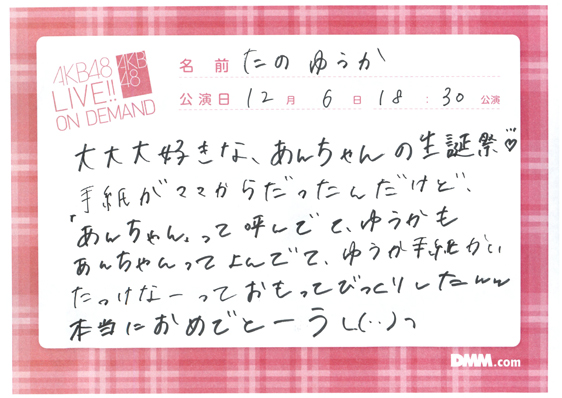 AKB48
LIVE!!
ON DEMAND
AKB
48
名前 たの ゆうか
公演日 12月 6日 18:30 公演
大大大好きな、あんちゃんの生誕祭♡
手紙がママからだったんだけど、
「あんちゃん」って呼んでて、ゆうかも
あんちゃんってよんでて、ゆうか手紙かい
たっけなーっておもってびっくりしたww
本当におめでとーう└(･･)┐
DMM.com